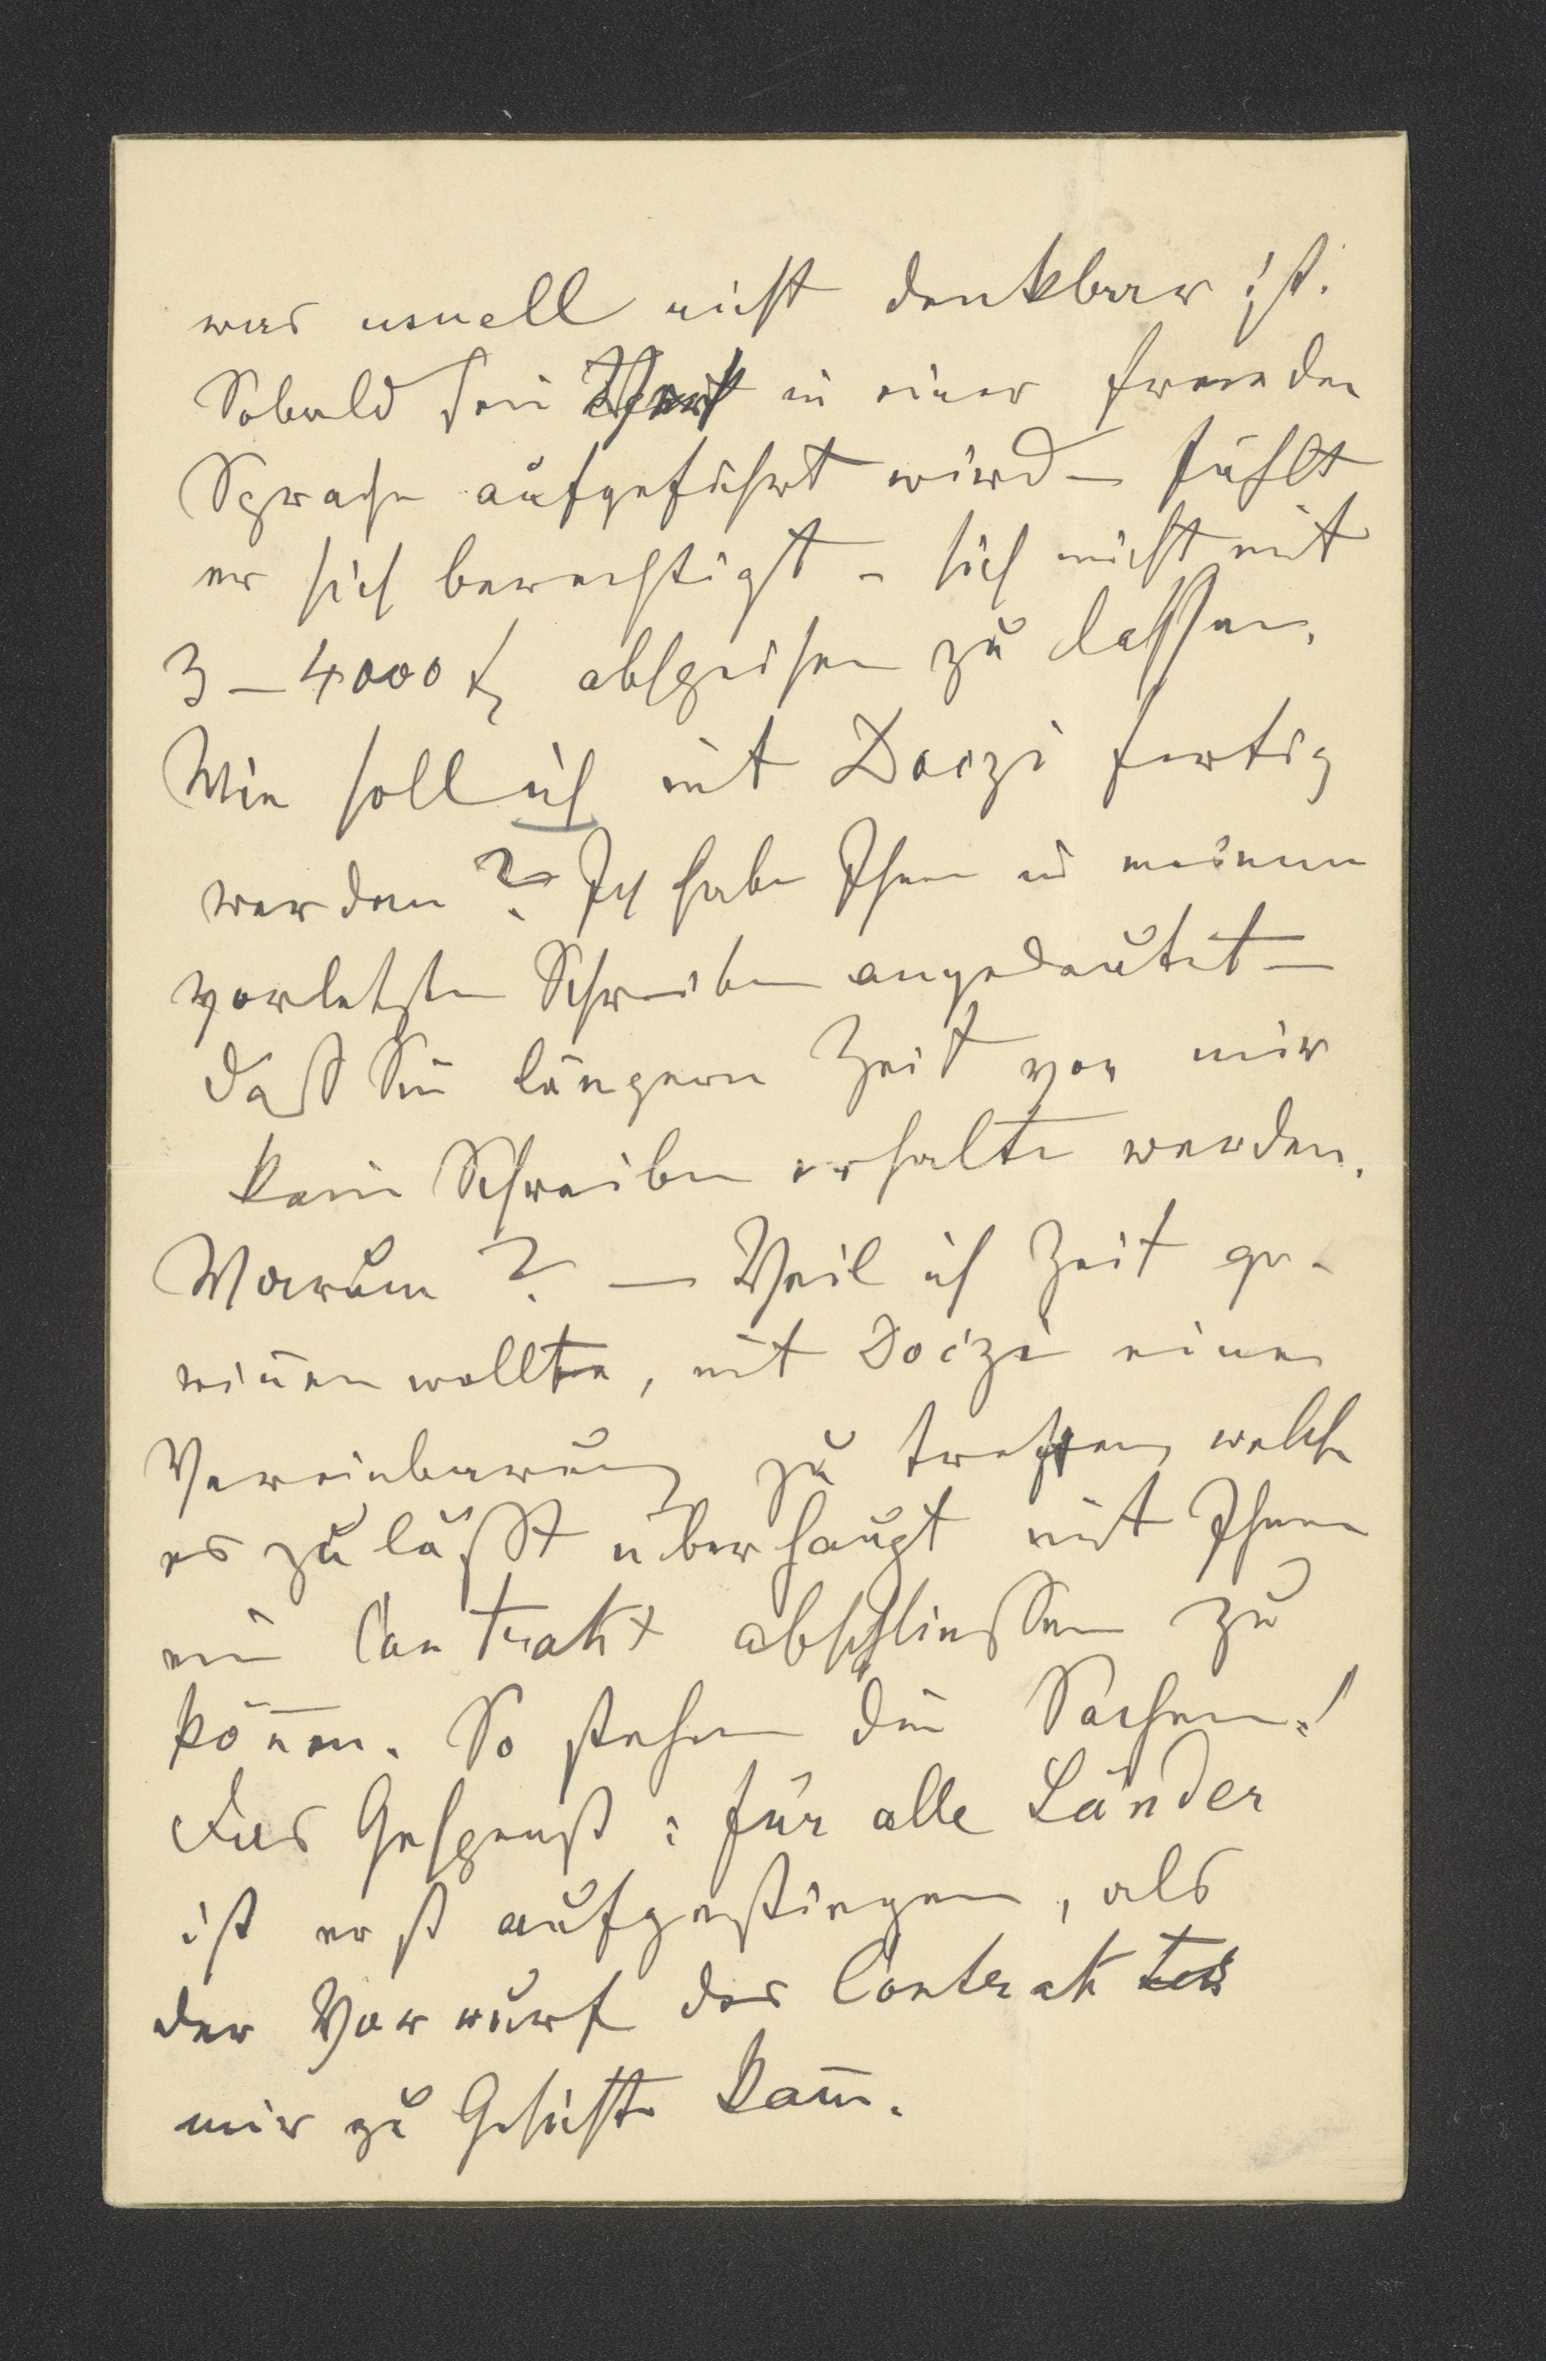 was usuell nicht denkbar ist.
Sobald sein Werk in einer fremden
Sprache aufgeführt wird – fühlt
er sich berechtigt – sich nicht mit
3–4000 f abspeisen zu lassen.
Wie soll ich mit Doczi fertig
werden? Ich habe Ihnen in meinem
vorletzten Schreiben angedeutet –
daß Sie längere Zeit von mir
kein Schreiben erhalten werden.
Warum? – Weil ich Zeit ge-
winnen wollte, mit Doczi eine
Vereinbarung zu treffen, welche
es zuläßt überhaupt mit Ihnen
ein Contrakt abschließen zu
können. So stehen die Sachen!
Das Gespenst: für alle Länder
ist erst aufgestiegen, als
der Vorwurf des Contraktes
mir zu Gesichte kam.